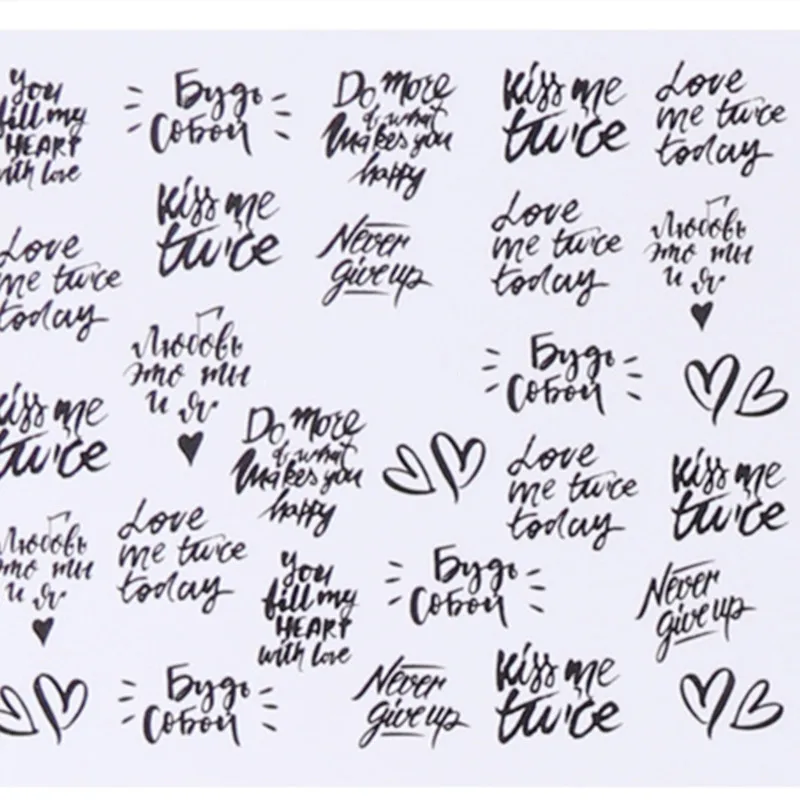 You
fill my
HEART
with love
Будь
Собой
Do more
of what
Makes you
happy
Kiss me
twice
Love
me twice
today
Kiss me
twice
Never
give up
Love
me twice
today
Любовь
это ты
и я
Love
me twice
today
Любовь
это ты
и я
Будь
Собой
Kiss me
twice
Do more
of what
Makes you
happy
Love
me twice
today
Kiss me
twice
Любовь
это ты
и я
Love
me twice
today
You
fill my
HEART
with love
Будь
Собой
Never
give up
Будь
Собой
Never
give up
Kiss me
twice